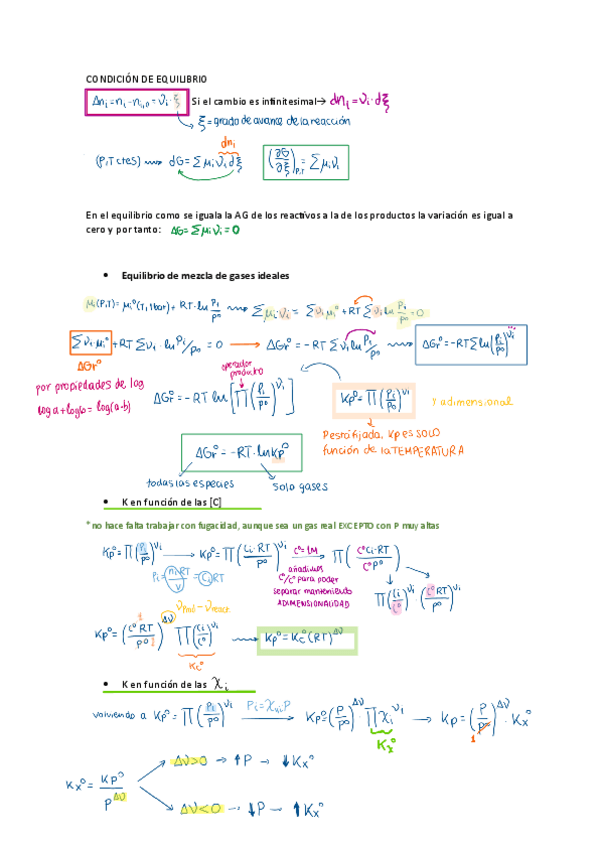 CONDICIÓN DE EQUILIBRIO
Δnᵢ = nᵢ - nᵢ,₀ = νᵢ · ξ Si el cambio es infinitesimal→ dnᵢ = νᵢ · dξ
ξ = grado de avance de la reacción
dnᵢ
(P,T ctes) ⟿ dG = Σ μᵢ νᵢ dξ (∂G/∂ξ)P,T = Σ μᵢ νᵢ
En el equilibrio como se iguala la AG de los reactivos a la de los productos la variación es igual a
cero y por tanto: ΔG = Σ μᵢ νᵢ = 0
• Equilibrio de mezcla de gases ideales
μᵢ(P,T) = μᵢ°(T, 1bar) + RT · ln Pᵢ/P° ⟿ Σ μᵢ · νᵢ = Σ νᵢ μᵢ° + RT Σ νᵢ ln Pᵢ/P° = 0
Σ νᵢ · μᵢ° + RT Σ νᵢ · ln Pᵢ/P° = 0 → ΔGr° = - RT Σ νᵢ ln Pᵢ/P° ⟿ ΔGr° = - RT Σ ln (Pᵢ/P°)^νᵢ
ΔGr°
operador producto
por propiedades de log
log a + log b = log (a·b)
ΔGr° = - RT ln [∏ (Pᵢ/P°)^νᵢ] Kp° = ∏ (Pᵢ/P°)^νᵢ y adimensional
P está fijada, Kp es SOLO
función de la TEMPERATURA
ΔGr° = - RT · ln Kp°
todas las especies solo gases
• K en función de las [C]
*no hace falta trabajar con fugacidad, aunque sea un gas real EXCEPTO con P muy altas
Kp° = ∏ (Pᵢ/P°)^νᵢ → Kp° = ∏ (Cᵢ · RT/P°)^νᵢ c° = 1M → ∏ (c° Cᵢ · RT/c° P°)
Pᵢ = nᵢ RT/V = Cᵢ RT
añadimos
c°/c° para poder
separar manteniendo
ADIMENSIONALIDAD
∏ (Cᵢ/c°)^νᵢ · (c° RT/P°)^νᵢ
νprod - νreact
Kp° = (c° RT/P°)^Δν ∏ (Cᵢ/c°)^νᵢ ⟿ Kp° = Kc° (RT)^Δν
1
Kc°
• K en función de las χᵢ
volviendo a Kp° = ∏ (Pᵢ/P°)^νᵢ Pᵢ = χᵢ · P → Kp° = (P/P°)^Δν · ∏ χᵢ^νᵢ → Kp = (P/P°)^Δν · Kx°
Kx° 1
Δν>0 → ↑P → ↓Kx°
Kx° = Kp°/P^Δν
Δν<0 → ↓P → ↑Kx°